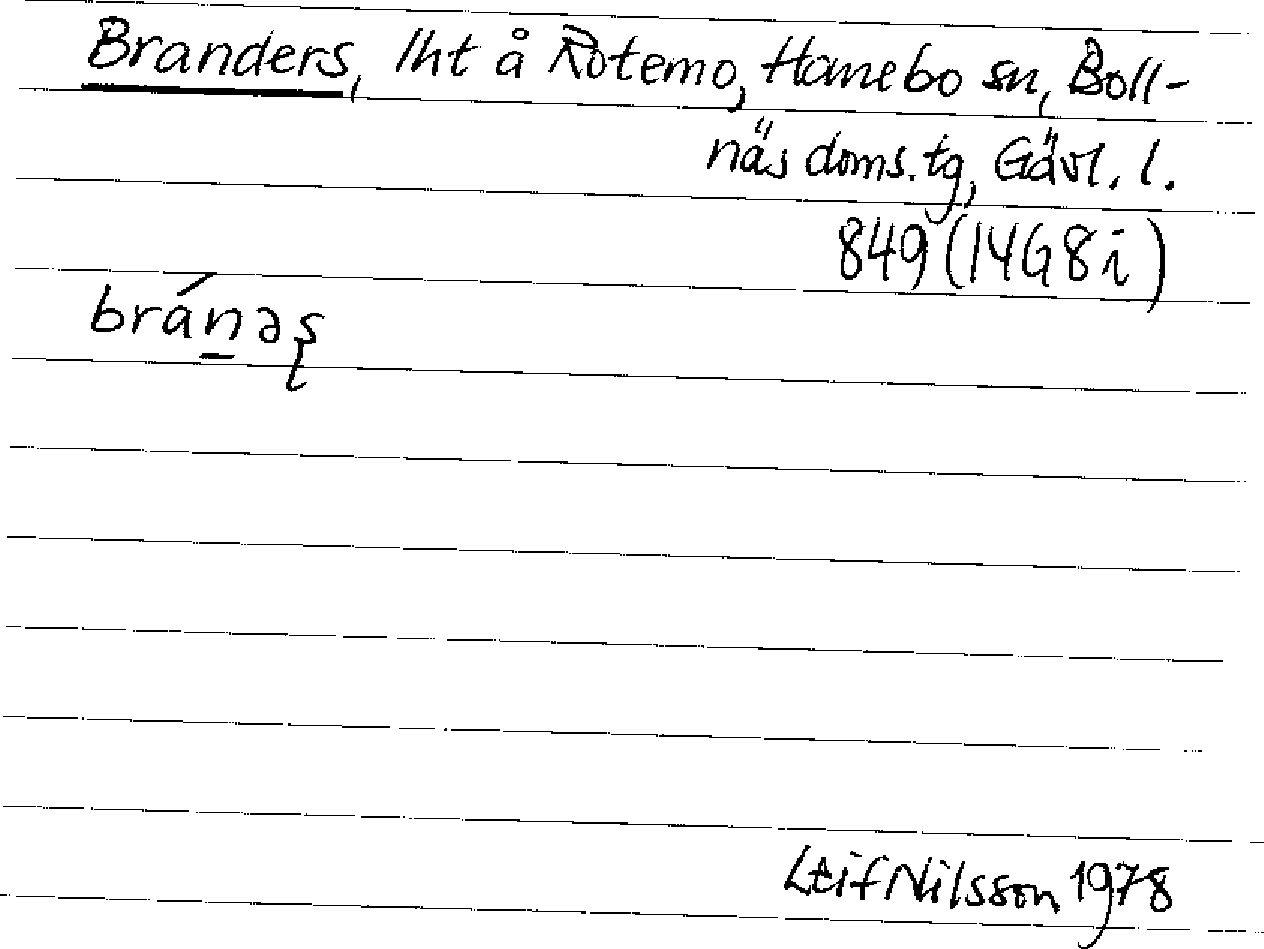 Branders, lht å Rotemo, Hanebo sn, Boll-
näs doms.tg, Gävl. l.
849 (14G8i)
brán̠əʂ
Leif Nilsson 1978